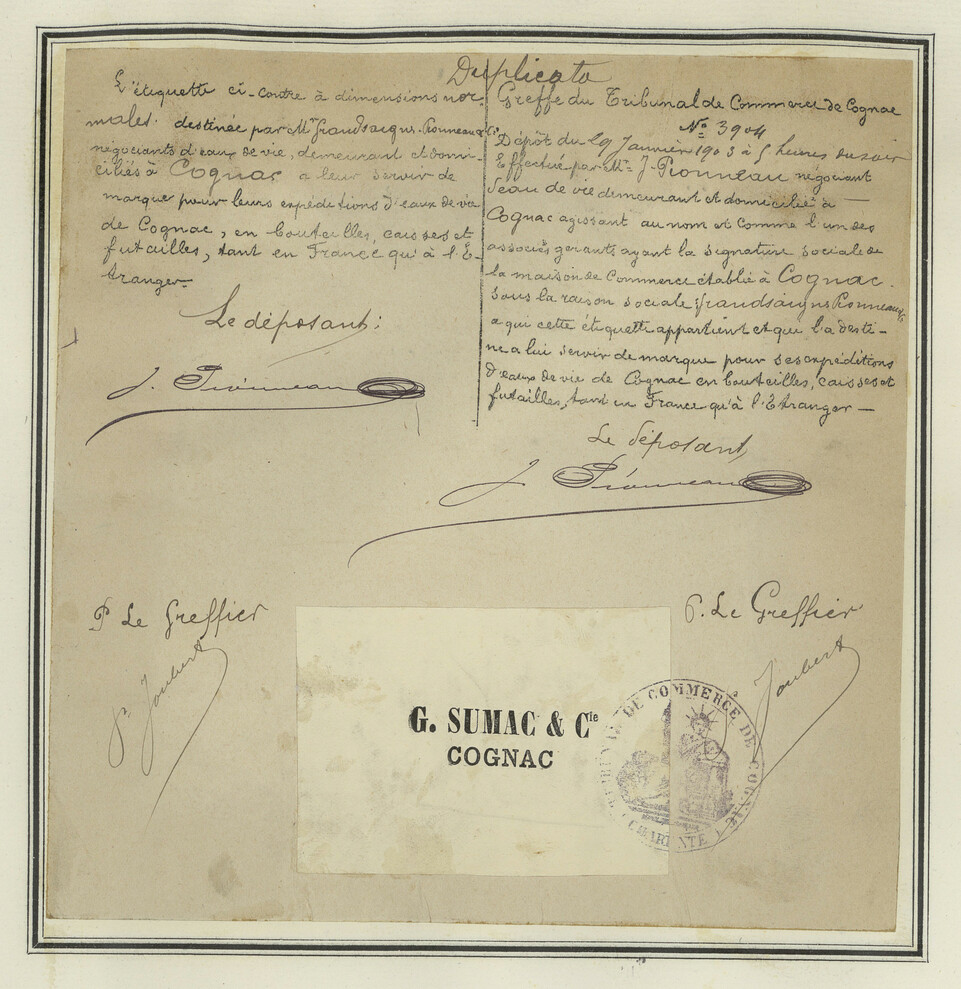 Duplicata
L'étiquette ci-contre à dimensions nor-
males. destinée par Mrs Grandsaigns. Pronneau & Cie
négociants d'eaux de vie, demeurant et domi-
ciliés à Cognac a leur servir de
marque pour leurs expéditions d'eaux de vie
de Cognac, en bouteilles, caisses et
futailles, tant en France qu'à l'É-
tranger
Le déposant:
J. Pronneau
Greffe du Tribunal de Commerce de Cognac
No 3904
Dépôt du 29 Janvier 1903 à 5 heures du soir
Effectué par Mr. J. Pronneau négociant
d'eau de vie demeurant et domicilié à —
Cognac agissant au nom et comme l'un des
associés gérants ayant la signature sociale de
la maison de Commerce établie à Cognac.
sous la raison sociale Grandsaigns Pronneau & Cie
a qui cette étiquette appartient et que la desti-
ne a lui servir de marque pour ses expéditions
d'eaux de vie de Cognac en bouteilles, caisses et
futailles, tant en France qu'à l'Etranger —
Le déposant,
J. Pronneau
P Le Greffier
Pr Joubert
P. Le Greffier
Joubert
G. SUMAC & Cie
COGNAC
TRIBUNAL DE COMMERCE DE COGNAC
(CHARENTE)